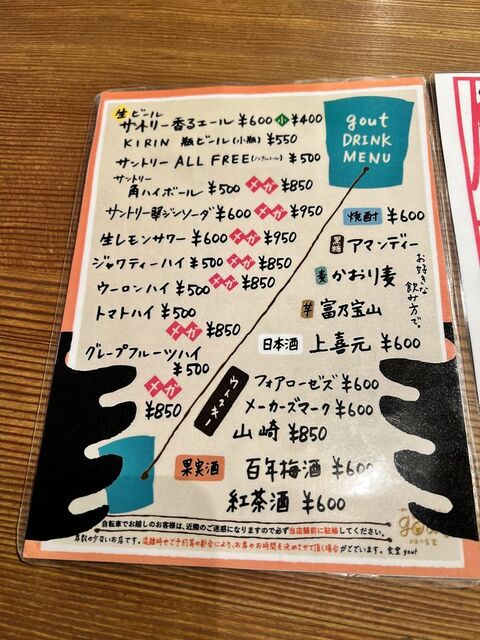 生ビール
サントリー香るエール ¥600 小 ¥400
KIRIN 瓶ビール(小瓶) ¥550
サントリー ALL FREE(ノンアルコール) ¥500
サントリー
角ハイボール ¥500 メガ ¥850
サントリー翠ジンソーダ ¥600 メガ ¥950
生レモンサワー ¥600 メガ ¥950
ジャワティーハイ ¥500 メガ ¥850
ウーロンハイ ¥500 メガ ¥850
トマトハイ ¥500
メガ ¥850
グレープフルーツハイ
¥500
メガ
¥850
gout
DRINK
MENU
焼酎 ¥600
黒糖 アマンディー
麦 かおり麦
芋 富乃宝山
お好きな
飲み方で。
日本酒 上喜元 ¥600
ウィスキー
フォアローゼズ ¥600
メーカーズマーク ¥600
山崎 ¥850
果実酒 百年梅酒 ¥600
紅茶酒 ¥600
自転車でお越しのお客様は、近隣のご迷惑になりますので必ず当店舗前に駐輪してください。
席数の少ないお店です。混雑時やご予約等の都合により、お席のお時間を決めさせて頂く場合がございます。食堂 gout